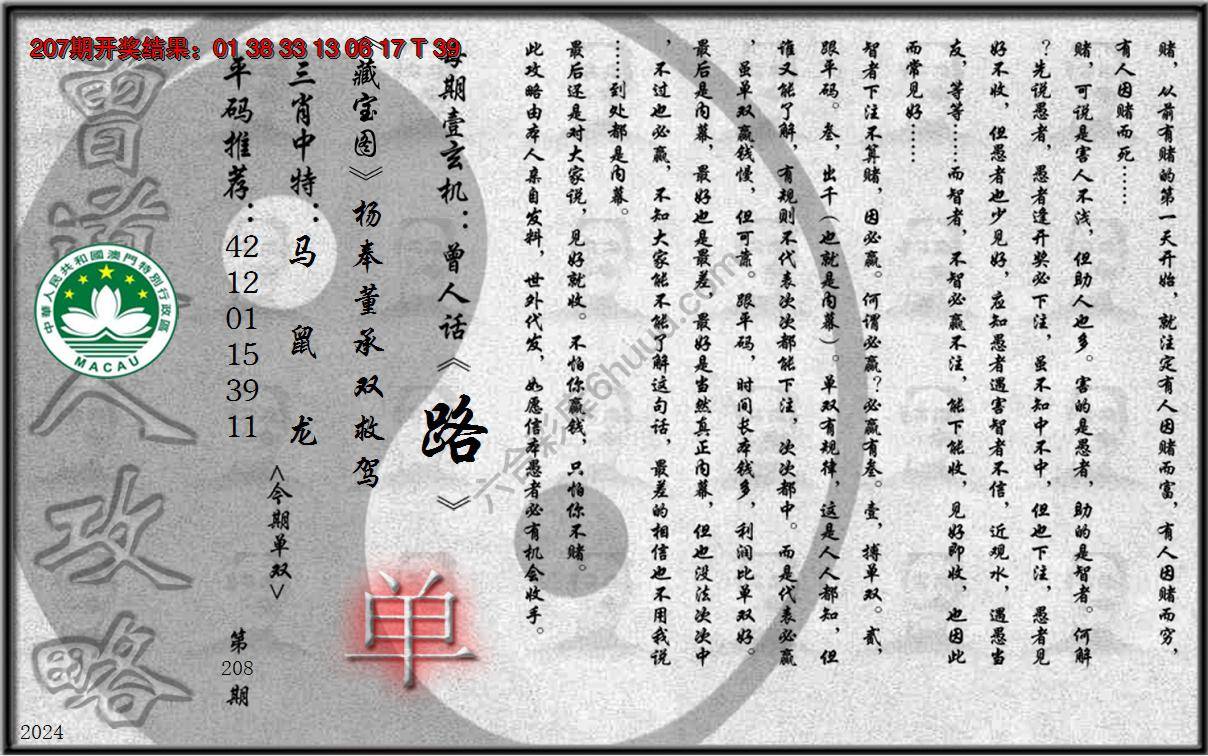 207期开奖结果：01 38 33 13 06 17 T 39
赌，从前有赌的第一天开始，就注定有人因赌而富，有人因赌而穷，
有人因赌而死……
赌，可说是害人不浅，但助人也多。害的是愚者，助的是智者。何解
？先说愚者，愚者逢开奖必下注，虽不知中不中，但也下注，愚者见
好不收，但愚者也少见好，应知愚者遇害智者不信，近观水，遇愚当
友，等等……而智者，不智必赢不注，能下能收，见好即收，也因此
而常见好……
智者下注不算赌，因必赢。何谓必赢？必赢有叁。壹，搏单双。贰，
跟平码。叁，出千（也就是内幕）。单双有规律，这是人人都知，但
谁又能了解，有规则不代表次次都能下注，次次都中。而是代表必赢
，虽单双赢钱慢，但可靠。跟平码，时间长本钱多，利润比单双好。
最后是内幕，最好也是最差，最好是当然真正内幕，但也没法次次中
，不过也必赢，不知大家能不能了解这句话，最差的相信也不用我说
……到处都是内幕。
最后还是对大家说，见好就收。不怕你赢钱，只怕你不赌。
此攻略由本人亲自发料，世外代发，如愿信本愚者必有机会收手。
每期壹玄机：曾人话《路》
《藏宝图》杨奉董承双救驾
三肖中特：马 鼠 龙
<今期单双>
单
平码推荐：42 12 01 15 39 11
第208期
曾道人攻略
中華人民共和國澳門特別行政區
MACAU
六合彩库6huuu.com
2024